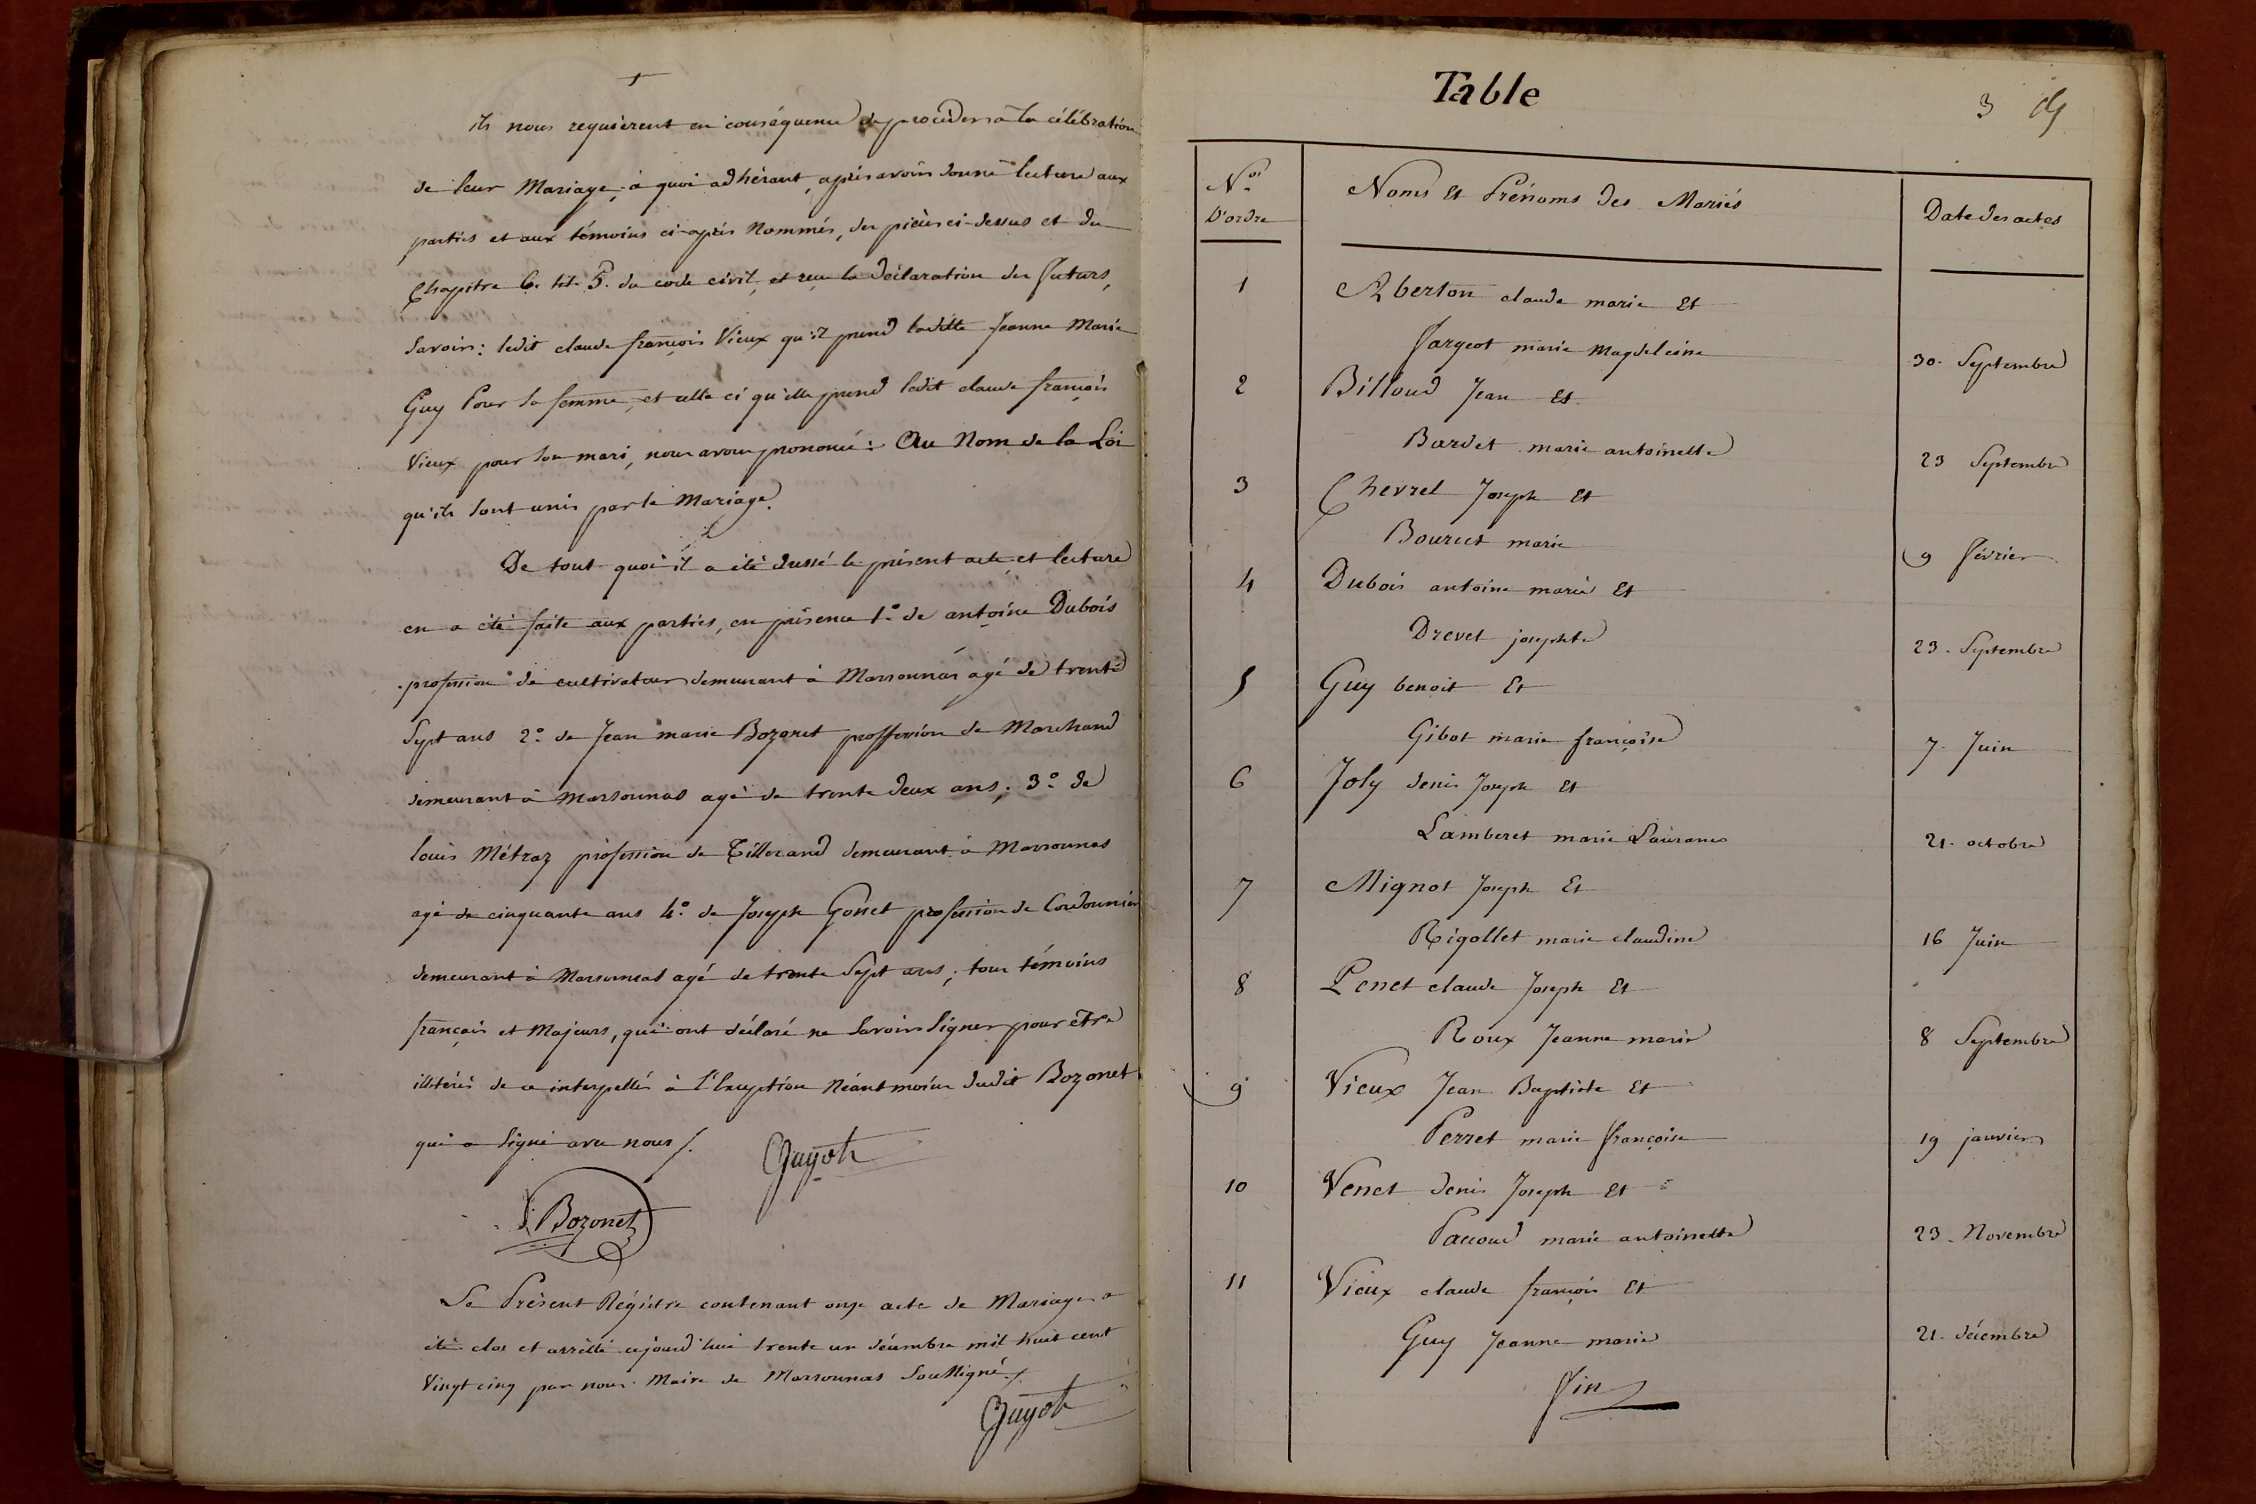 ils nous requièrent en conséquence de procéder à la célébration
de leur Mariage, à quoi adhérant, après avoir donné lecture aux
parties et aux témoins ci-après Nommés, des pièces ci-dessus et du
Chapitre 6. tit. 5. du code civil, et reçu la déclaration des futurs,
Savoir: ledit claude françois Vieux qu'il prend laditte Jeanne Marie
Guy Pour sa femme, et celle ci qu'elle prend ledit claude françois
Vieux pour son mari, nous avons prononcé: Au Nom de la Loi
qu'ils sont unis par le Mariage.
De tout quoi il a été dressé le présent acte et lecture
en a été faite aux parties, en présence 1.° de antoine Dubois
profession de cultivateur demeurant à Marsonnas agé de trente
Sept ans 2.° de Jean marie Bozonet proffession de Marchand
demeurant à Marsonnas agé de trente deux ans; 3.° de
louis Métraz profession de Tillerand demeurant à Marsonnas
agé de cinquante ans 4.° de Joseph Gonet profession de Cordonnier
demeurant à Marsonnas agé de trente Sept ans; tous témoins
français et Majeurs, qui ont déclaré ne Savoir Signer pour être
illitérés de ce interpellés à l'Exception Néantmoins dudit Bozonet
qui a Signé avec nous /.
Guyot
Bozonet
Le Présent Régistre contenant onze acte de Mariages a
été clos et arrêtté aujourd'hui trente un décembre mil huit cent
Vingt cinq par nous Maire de Marsonnas Soussigné /.
Guyot
Table
3
N.os D'ordre
Noms Et Prénoms des Mariés
Date des actes
1 Aberton claude marie Et
Fargeot marie Magdeleine 30. Septembre
2 Billoud Jean Et
Bardet marie antoinette 23 Septembre
3 Chevrel Joseph Et
Bourcet marie 9 février
4 Dubois antoine marie Et
Drevet josephte 23. Septembre
5 Guy benoit Et
Gibot marie françoise 7. Juin
6 Joly denis Joseph Et
Lamberet marie Laurance 21. octobre
7 Mignot Joseph Et
Rigollet marie claudine 16 Juin
8 Penet claude Joseph Et
Roux Jeanne marie 8 Septembre
9 Vieux Jean Baptiste Et
Perret marie françoise 19 janvier
10 Venet denis Joseph Et
Paccoud marie antoinette 23. Novembre
11 Vieux claude françois Et
Guy Jeanne marie 21. décembre
fin